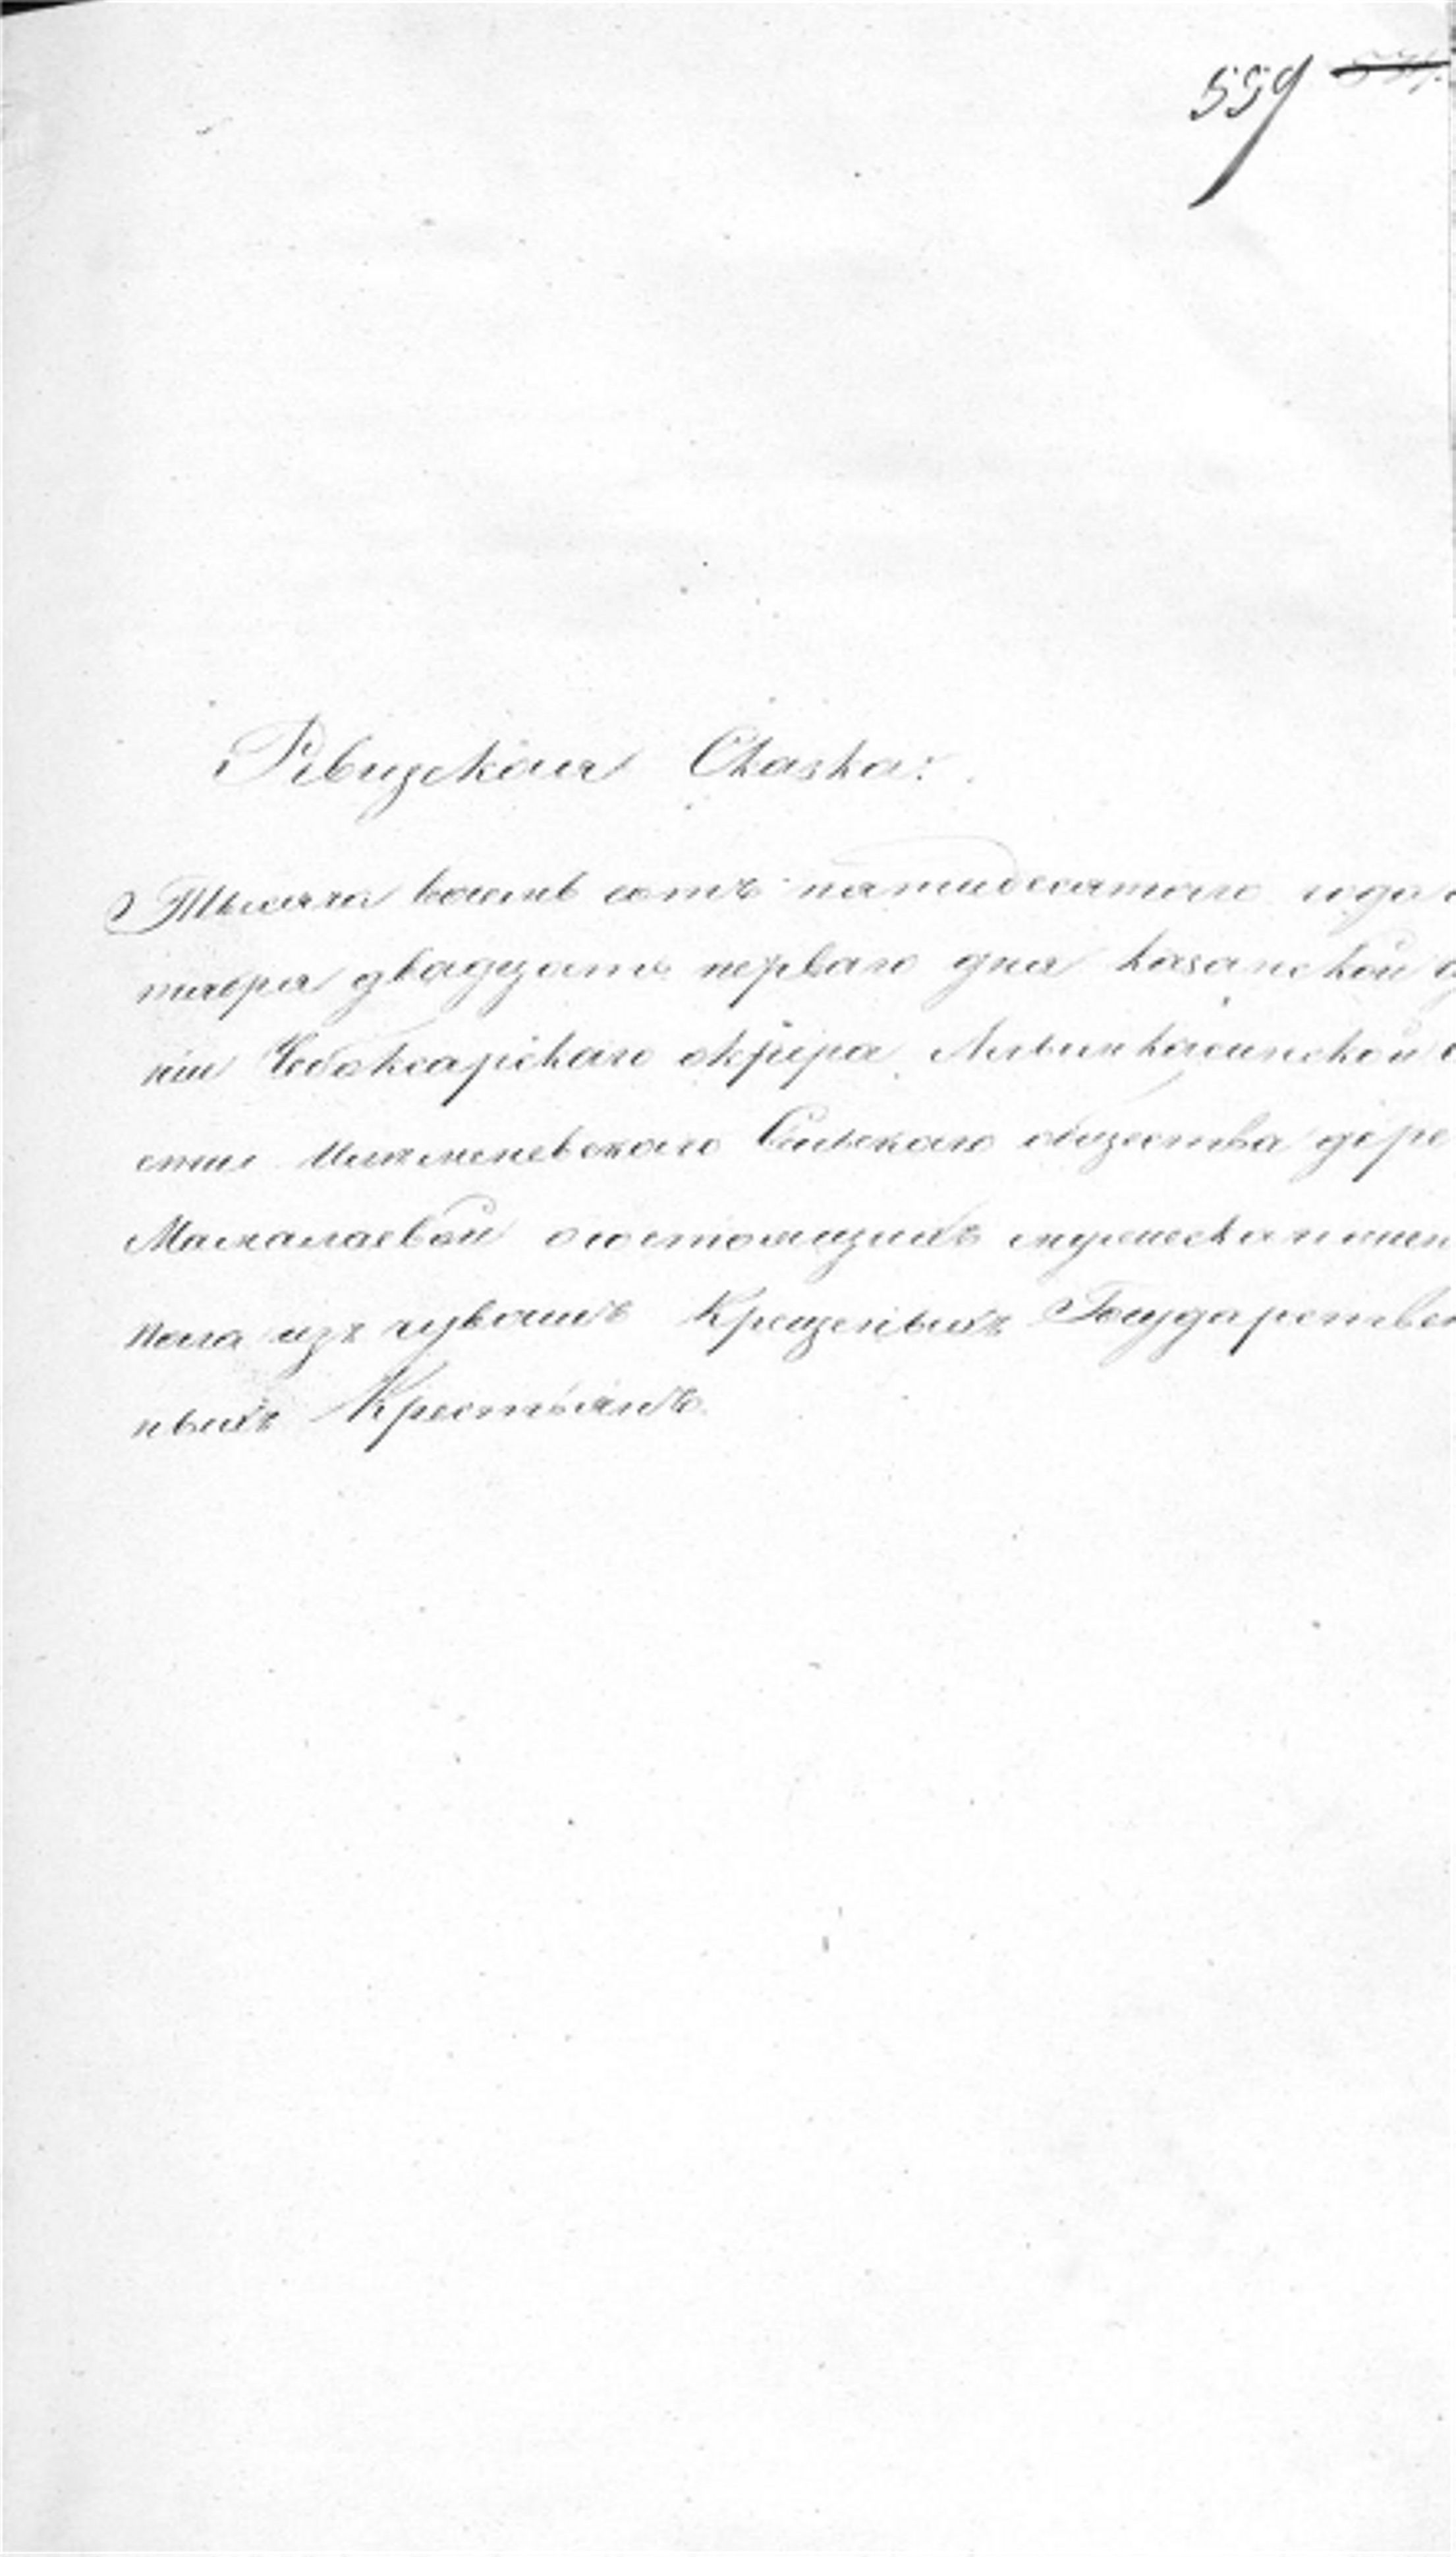 559
Ревизская Сказка:
Тысяча восемь сотъ пятидесятаго года о
тября двадцать перваго дня казанской гу
ніи Чебоксарскаго округа
сти Сельскаго общества дере
Мамалаевой о состоящихъ мужеска и жен
пола изъ чувашъ Крещеныхъ Государствен
ныхъ Крестьянъ.